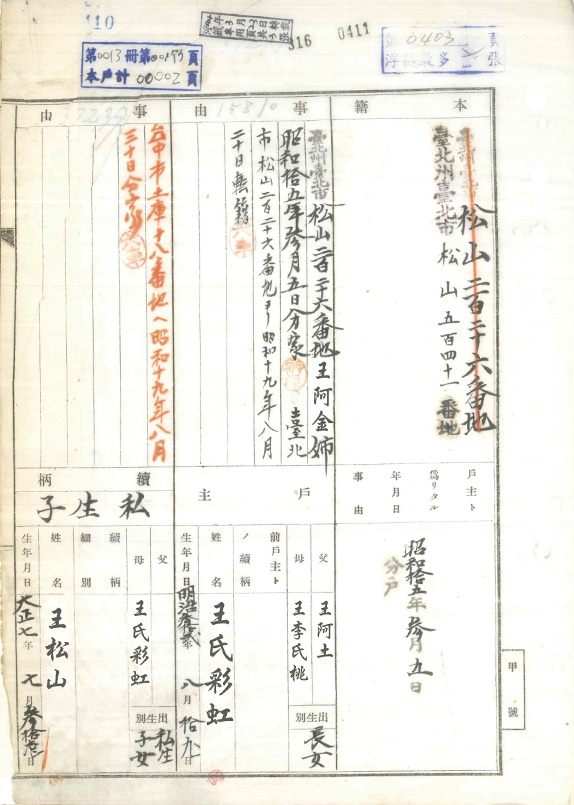 110
316
0411
第0013冊第00173頁
本戶計00002頁
0403
頁
張
本籍
臺北州臺北市松山二百二十六番地
臺北州臺北市松山五百四十一番地
戶主ト為リタル年月日事由
昭和拾五年參月五日
分戶
事由
臺北州臺北市松山二百二十六番地王阿金姉
昭和拾五年參月五日分家
臺北
市松山二百二十六番地ヨリ昭和十九年八月
二十日轉籍
戶主
前戶主トノ續柄
父
王阿土
母
王李氏桃
出生別
長女
姓名
王氏彩虹
生年月日
明治參拾貳年八月拾九日
事由
台中市土庫十八番地ヘ昭和十九年八月
三十日分戶
續柄
私生子
父
母
王氏彩虹
出生別
私生子女
續柄
細別
姓名
王松山
生年月日
大正七年七月參拾壱日
甲號